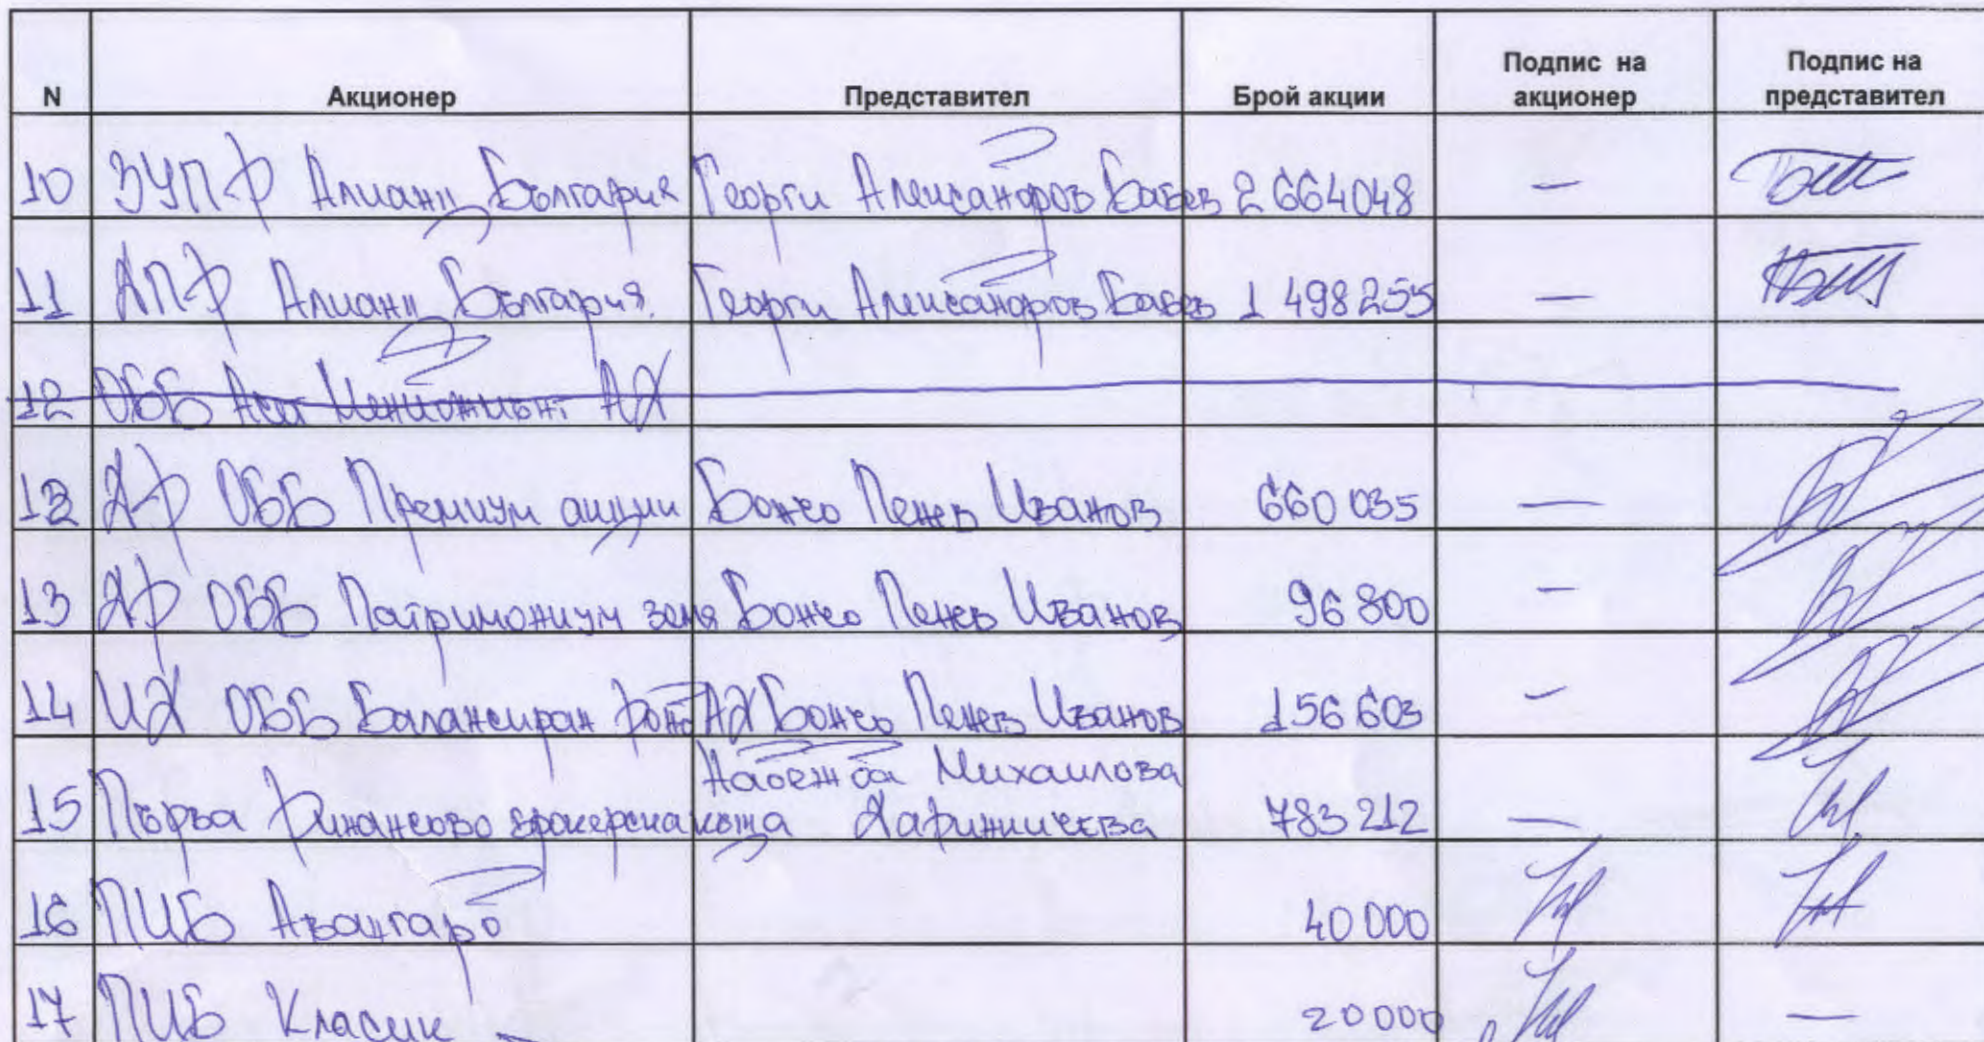 N Акционер Представител Брой акции Подпис на акционер Подпис на представител
10 ЗУПФ Алианц България Георги Александров Бабев 2 664048 —
11 ДПФ Алианц България Георги Александров Бабев 1 498255 —
12 ОББ Асет Мениджмънт АД
12 ДФ ОББ Премиум акции Бончо Пенев Иванов 660 035 —
13 ДФ ОББ Патримониум земя Бончо Пенев Иванов 96 800 —
14 ИД ОББ Балансиран фонд АД Бончо Пенев Иванов 156 603 —
15 Първа Финансово брокерска къща Надежда Михайлова 783 212 —
16 ПИБ Авангард 40 000
17 ПИБ Класик 20 000 —